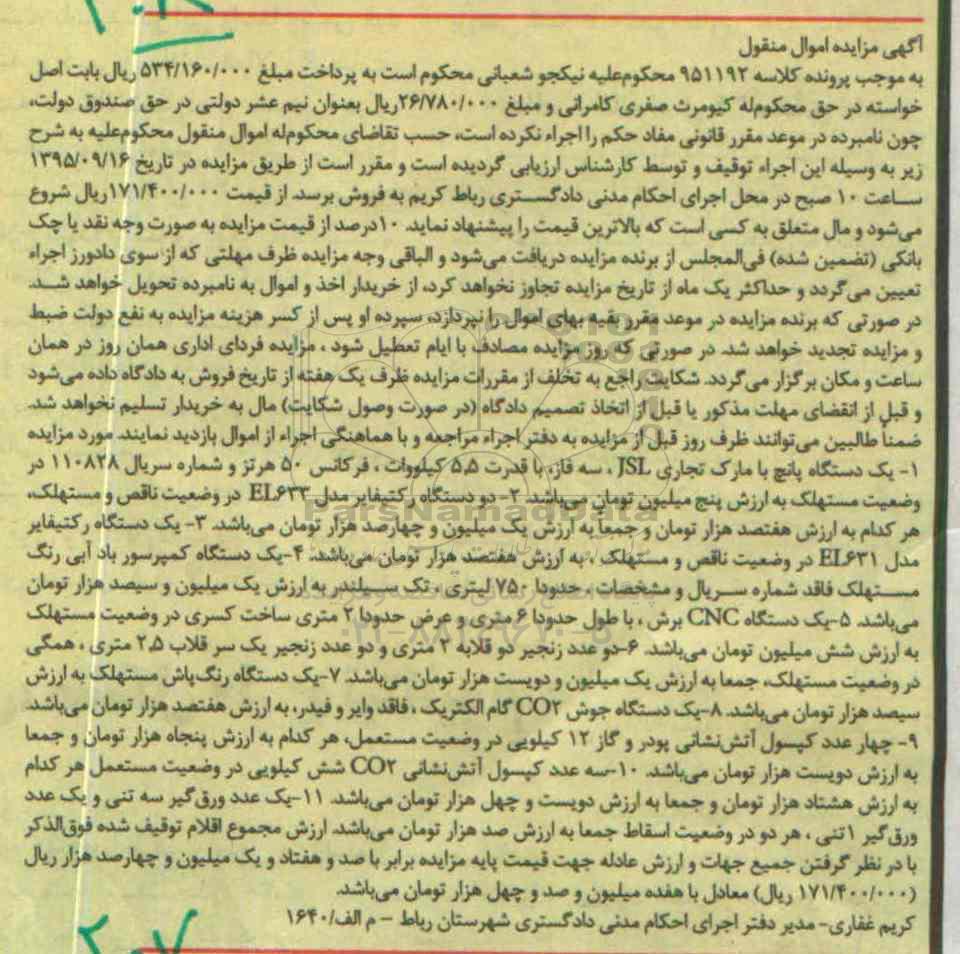 آگهی مزایده اموال منقول
به موجب پرونده کلاسه ۹۵۱۱۹۲ محکوم‌علیه نیکجو شعبانی محکوم است به پرداخت مبلغ ۵۳۴/۱۶۰/۰۰۰ ریال بابت اصل
خواسته در حق محکوم‌له کیومرث صفری کامرانی و مبلغ ۲۶/۷۸۰/۰۰۰ریال بعنوان نیم عشر دولتی در حق صندوق دولت،
چون نامبرده در موعد مقرر قانونی مفاد حکم را اجراء نکرده است، حسب تقاضای محکوم‌له اموال منقول محکوم‌علیه به شرح
زیر به وسیله این اجراء توقیف و توسط کارشناس ارزیابی گردیده است و مقرر است از طریق مزایده در تاریخ ۱۳۹۵/۰۹/۱۶
ساعت ۱۰ صبح در محل اجرای احکام مدنی دادگستری رباط کریم به فروش برسد. از قیمت ۱۷۱/۴۰۰/۰۰۰ریال شروع
می‌شود و مال متعلق به کسی است که بالاترین قیمت را پیشنهاد نماید. ۱۰درصد از قیمت مزایده به صورت وجه نقد یا چک
بانکی (تضمین شده) فی‌المجلس از برنده مزایده دریافت می‌شود و الباقی وجه مزایده ظرف مهلتی که از سوی دادورز اجراء
تعیین می‌گردد و حداکثر یک ماه از تاریخ مزایده تجاوز نخواهد کرد، از خریدار اخذ و اموال به نامبرده تحویل خواهد شد.
در صورتی که برنده مزایده در موعد مقرر بقیه بهای اموال را نپردازد، سپرده او پس از کسر هزینه مزایده به نفع دولت ضبط
و مزایده تجدید خواهد شد. در صورتی که روز مزایده مصادف با ایام تعطیل شود ، مزایده فردای اداری همان روز در همان
ساعت و مکان برگزار می‌گردد. شکایت راجع به تخلف از مقررات مزایده ظرف یک هفته از تاریخ فروش به دادگاه داده می‌شود
و قبل از انقضای مهلت مذکور یا قبل از اتخاذ تصمیم دادگاه (در صورت وصول شکایت) مال به خریدار تسلیم نخواهد شد.
ضمناً طالبین می‌توانند ظرف روز قبل از مزایده به دفتر اجراء مراجعه و با هماهنگی اجراء از اموال بازدید نمایند. مورد مزایده
۱- یک دستگاه پانچ با مارک تجاری JSL ، سه فاز، با قدرت ۵,۵ کیلووات ، فرکانس ۵۰ هرتز و شماره سریال ۱۱۰۸۲۸ در
وضعیت مستهلک به ارزش پنج میلیون تومان می‌باشد. ۲- دو دستگاه رکتیفایر مدل EL۶۳۳ در وضعیت ناقص و مستهلک،
هر کدام به ارزش هفتصد هزار تومان و جمعاً به ارزش یک میلیون و چهارصد هزار تومان می‌باشد. ۳- یک دستگاه رکتیفایر
مدل EL۶۳۱ در وضعیت ناقص و مستهلک ، به ارزش هفتصد هزار تومان می‌باشد. ۴-یک دستگاه کمپرسور باد آبی رنگ
مستهلک فاقد شماره سریال و مشخصات ، حدودا ۷۵۰ لیتری ، تک سیلندر به ارزش یک میلیون و سیصد هزار تومان
می‌باشد. ۵-یک دستگاه CNC برش ، با طول حدودا ۶ متری و عرض حدودا ۲ متری ساخت کسری در وضعیت مستهلک
به ارزش شش میلیون تومان می‌باشد. ۶-دو عدد زنجیر دو قلابه ۲ متری و دو عدد زنجیر یک سر قلاب ۲,۵ متری ، همگی
در وضعیت مستهلک، جمعا به ارزش یک میلیون و دویست هزار تومان می‌باشد. ۷-یک دستگاه رنگ‌پاش مستهلک به ارزش
سیصد هزار تومان می‌باشد. ۸-یک دستگاه جوش CO۲ گام الکتریک ، فاقد وایر و فیدر، به ارزش هفتصد هزار تومان می‌باشد.
۹- چهار عدد کپسول آتش‌نشانی پودر و گاز ۱۲ کیلویی در وضعیت مستعمل، هر کدام به ارزش پنجاه هزار تومان و جمعا
به ارزش دویست هزار تومان می‌باشد. ۱۰-سه عدد کپسول آتش‌نشانی CO۲ شش کیلویی در وضعیت مستعمل هر کدام
به ارزش هشتاد هزار تومان و جمعا به ارزش دویست و چهل هزار تومان می‌باشد. ۱۱-یک عدد ورق‌گیر سه تنی و یک عدد
ورق‌گیر ۱تنی ، هر دو در وضعیت اسقاط جمعا به ارزش صد هزار تومان می‌باشد. ارزش مجموع اقلام توقیف شده فوق‌الذکر
با در نظر گرفتن جمیع جهات و ارزش عادله جهت قیمت پایه مزایده برابر با صد و هفتاد و یک میلیون و چهارصد هزار ریال
(۱۷۱/۴۰۰/۰۰۰ ریال) معادل با هفده میلیون و صد و چهل هزار تومان می‌باشد.
کریم غفاری- مدیر دفتر اجرای احکام مدنی دادگستری شهرستان رباط – م الف/۱۶۴۰
ParsNamadData
۲۰۷